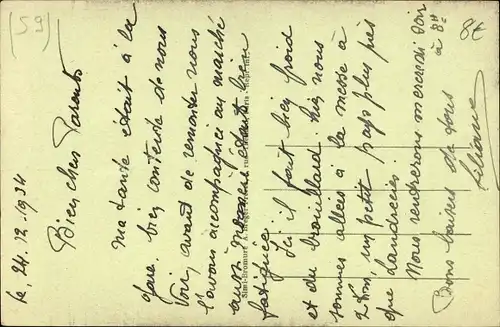 le, 24.12.1934
Bien chers Parents
ma tante était à la
gare, bien contente de nous
voir, avant de remonter nous
l'avons accompagnée au marché
aussi étant bien
fatiguée
Ici il fait bien froid
et du brouillard. hier nous
sommes allées à la messe à
2 km, un petit pays plus près
que Landrecies.
Nous rentrerons mercredi soir
à 8H
Bons baisers de tous
Liliane
[59]
8€